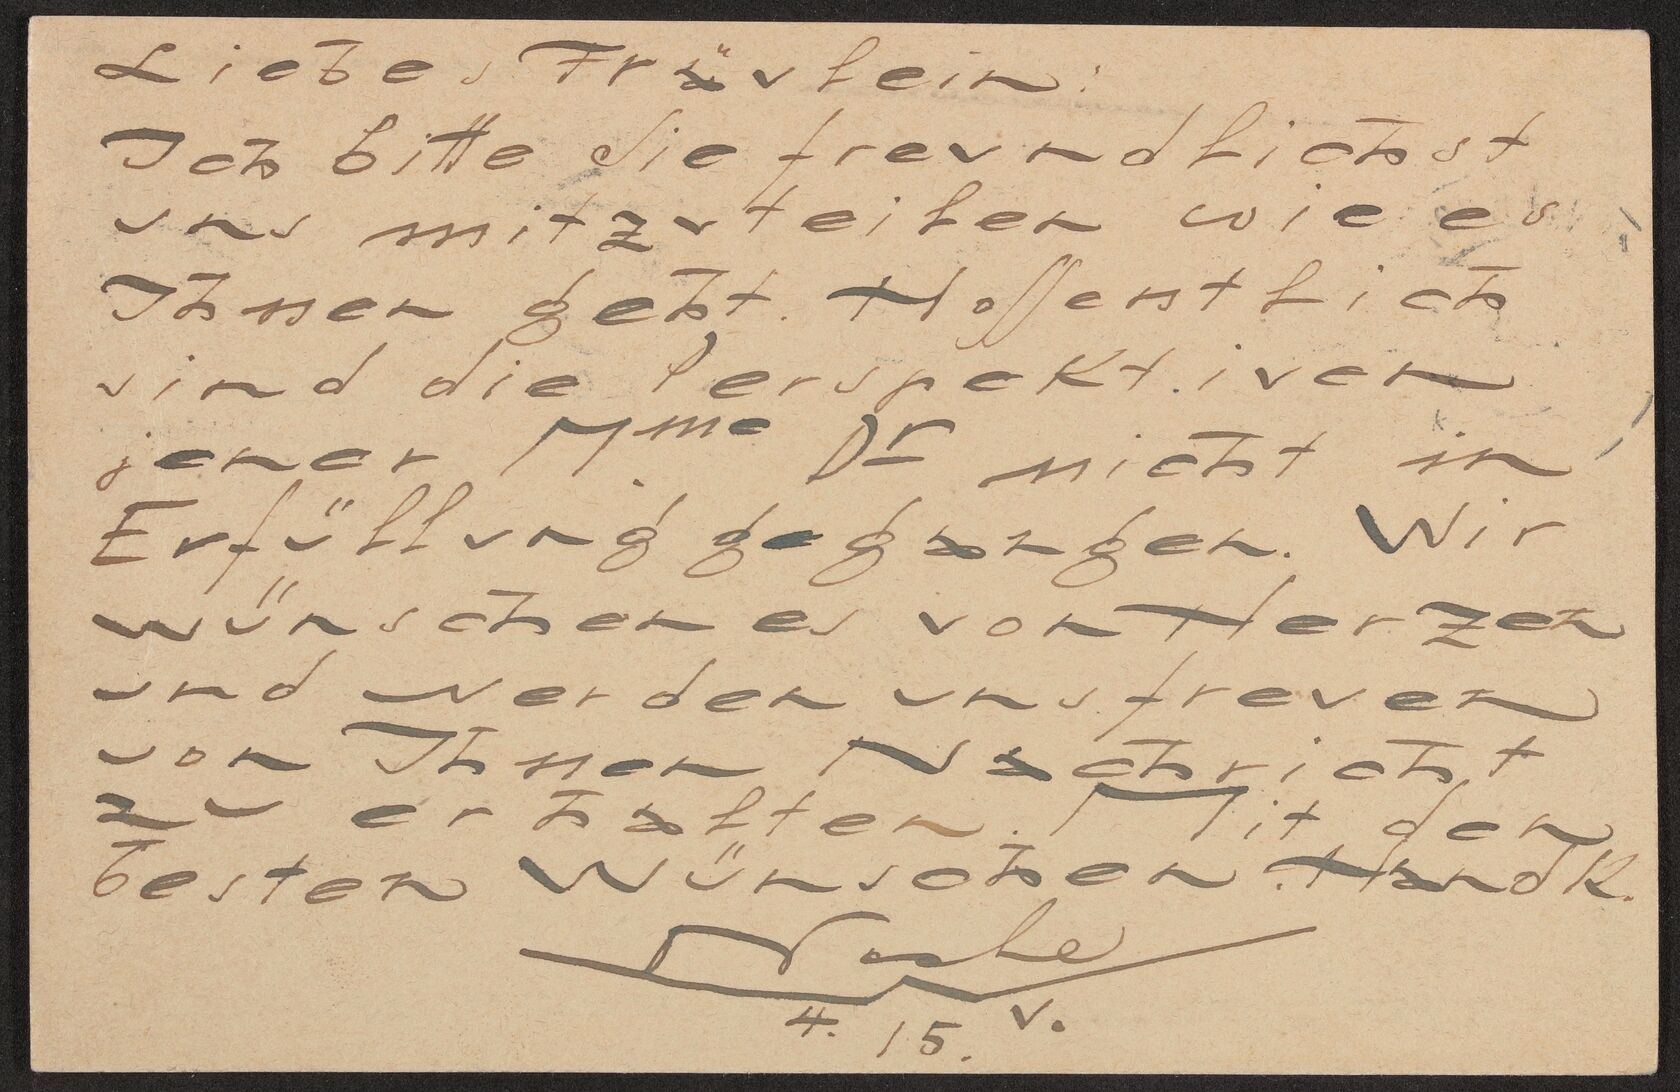 Liebes Fräulein:
Ich bitte Sie freundlichst
uns mitzuteilen wie es
Ihnen geht. Hoffentlich
sind die Perspektiven
jener Mme Dr nicht in
Erfüllung gegangen. Wir
wünschen es von Herzen
und werden uns freuen
von Ihnen Nachricht
zu erhalten. Mit den
besten Wünschen. Handk.
4. 15. V.